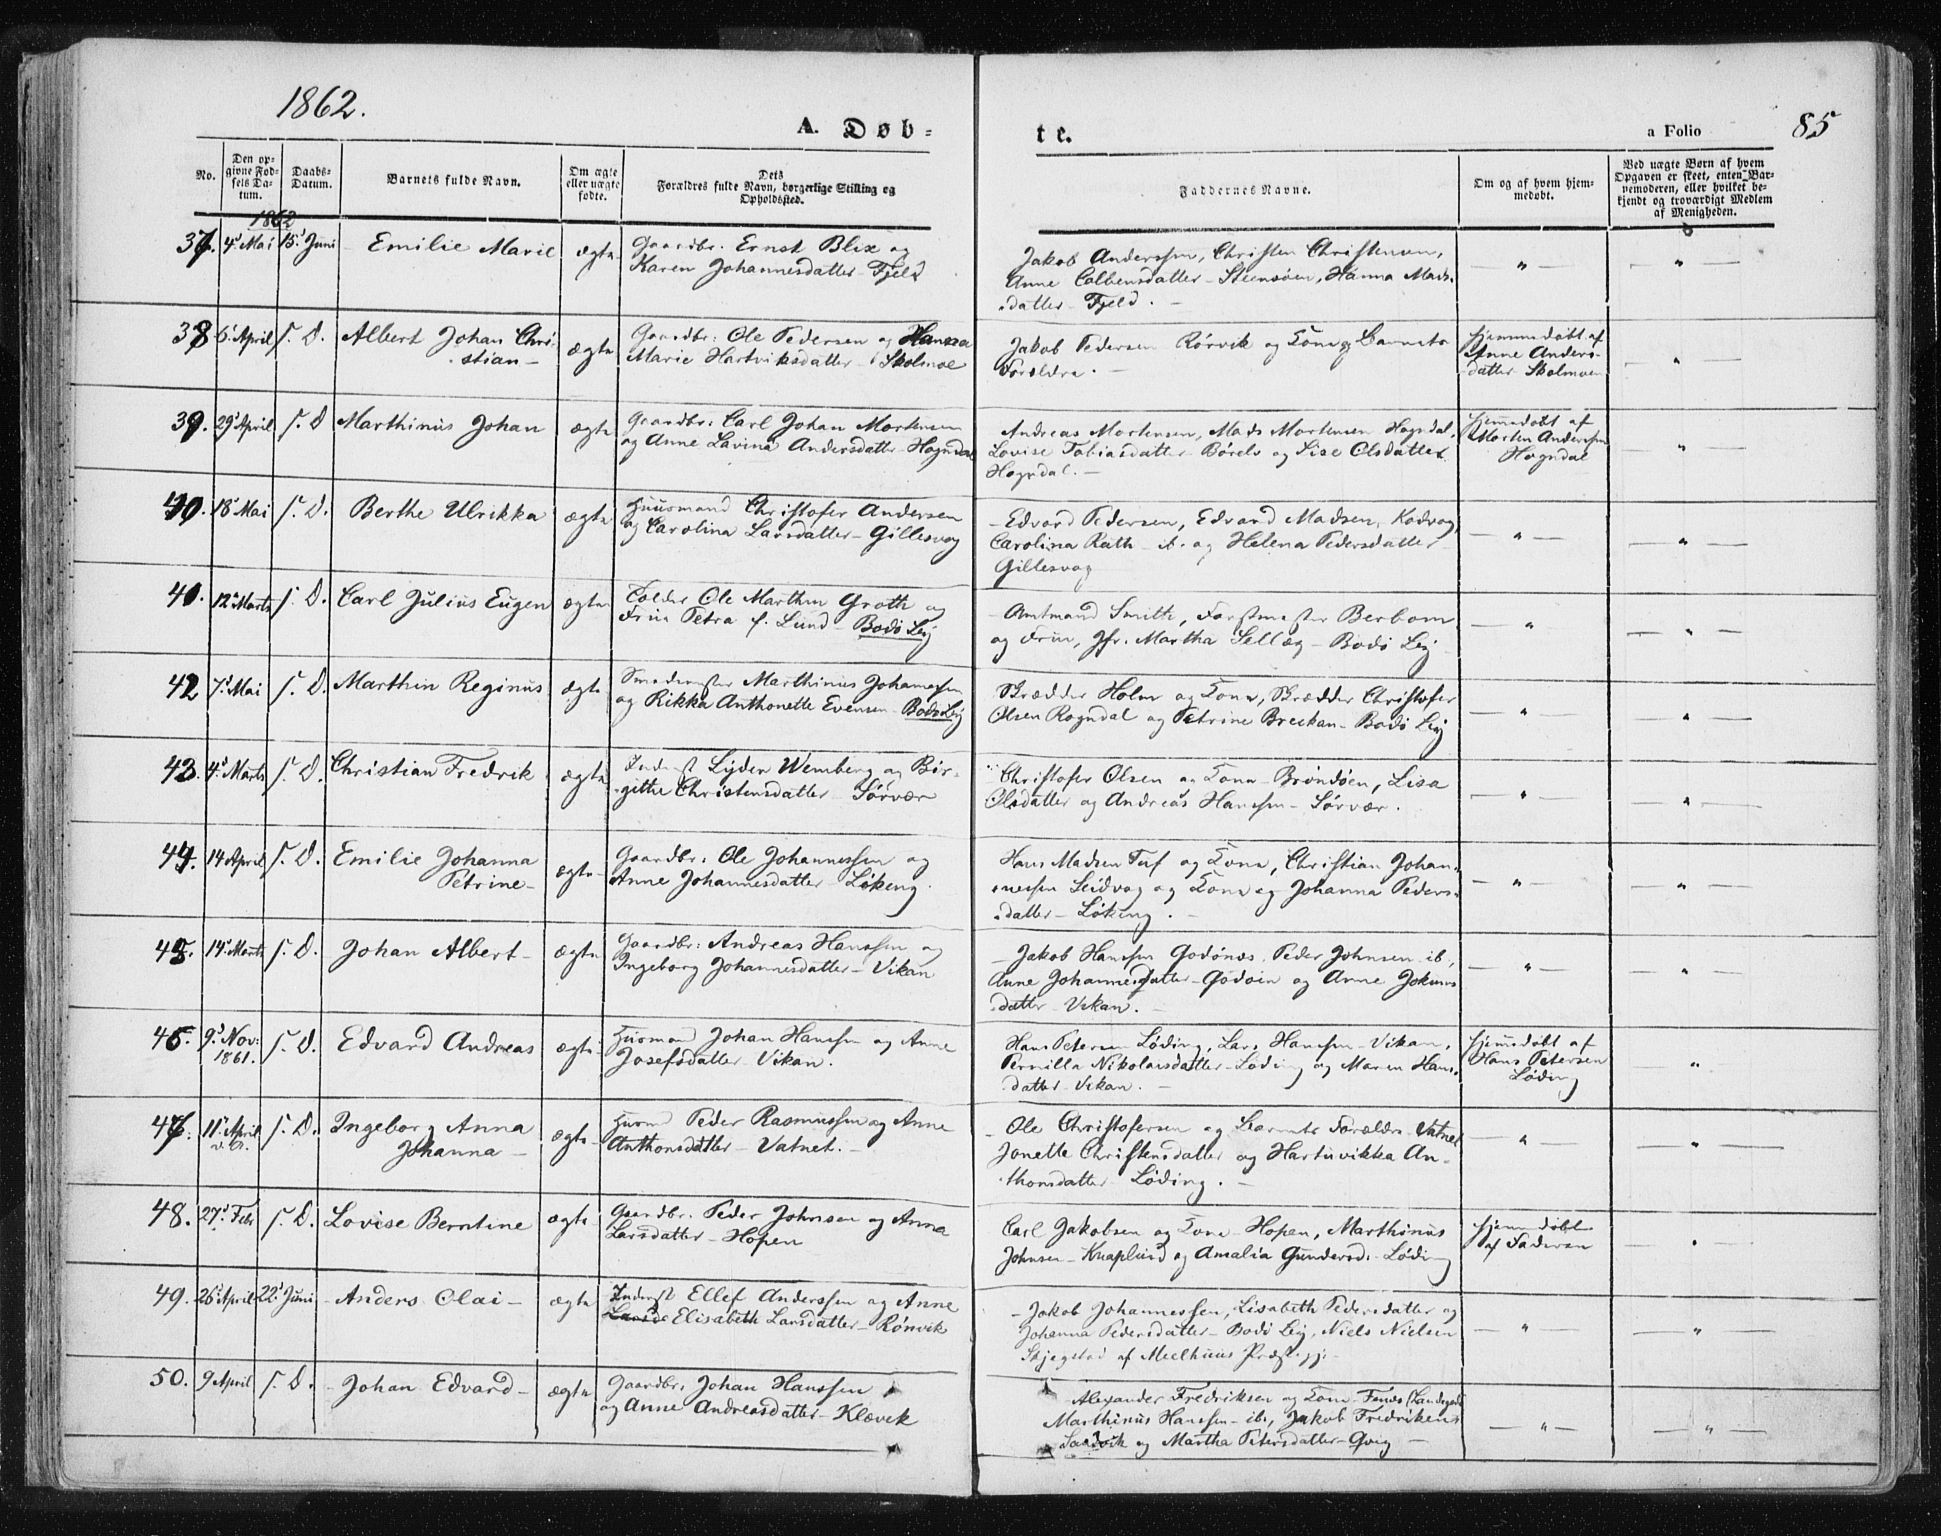 1862.
A. Døb-
te.
a Folio
85
No.
Den op-
givne Fød-
sels Da-
tum.
Daabs-
Datum.
Barnets fulde Navn.
Om ægte
eller uægte
fødte.
Dets
Forældres fulde Navn, borgerlige Stilling og
Opholdssted.
Faddernes Navne.
Om og af hvem hjem-
medøbt.
Ved uægte Børn af hvem
Opgaven er skeet, enten Bar-
nemoderen, eller hvilket be-
kjendt og troværdigt Medlem
af Menigheden.
1862
37. 4' Mai 15' Juni Emilie Marie ægte Gaardbr. Ernst Blix og
Karen Johannesdatter - Fjeld
Jakob Anderssen, Christen Christensen,
Anne Colbensdatter - Steensøen, Hanna Mads-
datter - Fjeld. -
38 6' April s. D. Albert Johan Chri-
stian - ægte Gaardbr: Ole Pedersen og Hanna
Marie Hartviksdatter - Skolmoe
Jakob Pedersen Rørvik og Kone og Barnets
Forældre. -
Hjemmedøbt af
Anne Anders-
datter Skolmoen
39. 29' April s. D Marthinus Johan ægte Gaardbr: Carl Johan Mortensen
og Anne Lavina Andersdatter - Hogndal
Andreas Mortensen, Mads Mortensen Hogndal,
Lovise Tobiasdatter Børelv og Lise Olsdatter
Hogndal. -
Hjemmedøbt af
Morten Anderssen
Hogndal
40. 18' Mai s. D. Berthe Ulrikka ægte Huusmand Christofer Andersen
og Carolina Larsdatter - Gillesvog
- Edvard Pedersen, Edvard Madsen, Kodvog
Carolina Rath - ib. og Helena Pedersdatter -
Gillesvog
41. 12' Marts s. D. Carl Julius Eugen ægte Tolder Ole Marthin Groth og
Frue Petra f. Lund - Bodø Leij
- Amtmand Smith, Forstmester Berbom
og Frue, Jfr. Martha Sellæg - Bodø Leij
42 7' Mai s. D. Marthin Reginus ægte Smedemester Marthinus Johannessen
og Rikka Anthonette Evensen - Bodø Leij
Skrædder Holm og Kone, Skrædder Christofer
Olsen Rogndal og Petrine Breckan - Bodø Leij
43. 4' Marts s. D. Christian Fredrik ægte Inderst Lyder Wemberg og Bir-
githe Christensdatter Sørvær
Christofer Olsen og Kone - Brøndøen, Lisa
Olsdatter og Andreas Hanssen - Sørvær.
44. 14 April s. D. Emilie Johanna
Petrine - ægte Gaardbr: Ole Johannessen og
Anne Johannesdatter - Løkeng.
Hans Madsen Tuf og Kone, Christian Johan-
nessen Seidvog og Kone og Johanna Peders-
datter - Løkeng. -
45. 14' Marts s. D. Johan Albert - ægte Gaardbr: Andreas Hanssen og
Ingeborg Johannesdatter - Vikan
- Jakob Hanssen Godønæs, Peder Johnsen - ib.,
Anne Johannesdatter - Godøen og Anne Jokums
datter - Vikan. -
46. 9' Nov:
1861. s. D. Edvard Andreas ægte Husmd Johan Hanssen og Anne
Josefsdatter - Vikan.
Hans Petersen Løding, Lars Hanssen - Vikan,
Pernilla Nikolaisdatter - Løding og Maren Hans-
datter - Vikan. -
Hjemmedøbt af
Hans Petersen
Løding
47. 11' April
d. A. s. D. Ingeborg Anna
Johanna - ægte Husmd Peder Rasmussen og Anne
Anthonsdatter - Vatnet. -
- Ole Christofersen og Barnets Forældre - Vatnet
Jonette Christensdatter og Hartvikka An-
thonsdatter Løding. -
48. 27' Febr s. D. Lovise Berntine ægte Gaardbr. Peder Johnsen og Anna
Larsdatter - Hopen
Carl Jakobsen og Kone - Hopen, Marthinus
Johnsen - Knaplund og Amalia Gundersd: - Løding
Hjemmedøbt
af Faderen
49. 26' April 22' Juni - Anders Olai - ægte Inderst Ellef Anderssen og Anne
Larsd. Elisabeth Larsdatter - Rønvik
- Jakob Johannessen, Lisabeth Pedersdatter og
Johanna Pedersdatter - Bodø Leij, Niels Nielsen
Skjegstad af Meelhuus Præstegj: -
50. 9 April s. D. - Johan Edvard - ægte Gaardbr. Johan Hanssen
og Anne Andreasdatter - Klevik
Alexander Fredriksen og Kone - Fenæs (Landegode)
Marthinus Hanssen - ib., Jakob Fredriksen
Sandvik og Martha Petersdatter - Qvig -